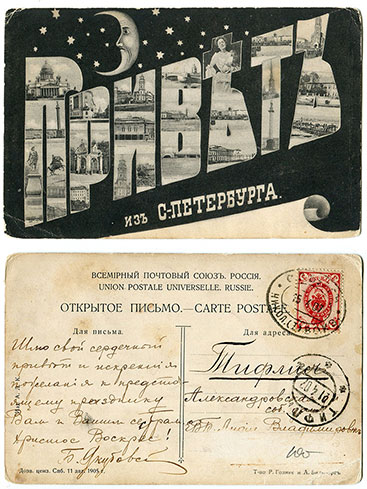 Привѣтъ
изъ С-Петербурга.
ВСЕМІРНЫЙ ПОЧТОВЫЙ СОЮЗЪ. РОССІЯ.
UNION POSTALE UNIVERSELLE. RUSSIE.
ОТКРЫТОЕ ПИСЬМО.—CARTE POSTALE
Для письма.
Для адреса.
Шлю свой сердечный
привѣтъ и искреннія
пожеланія к предсто-
ящему празднику
Вамъ и Вашим
Христос Воскрес!
Тифлисъ
Александровская
Дозв. ценз. Спб. 11 авг. 1905 г.
Т-во Р. Голике и А. Вильборгъ.